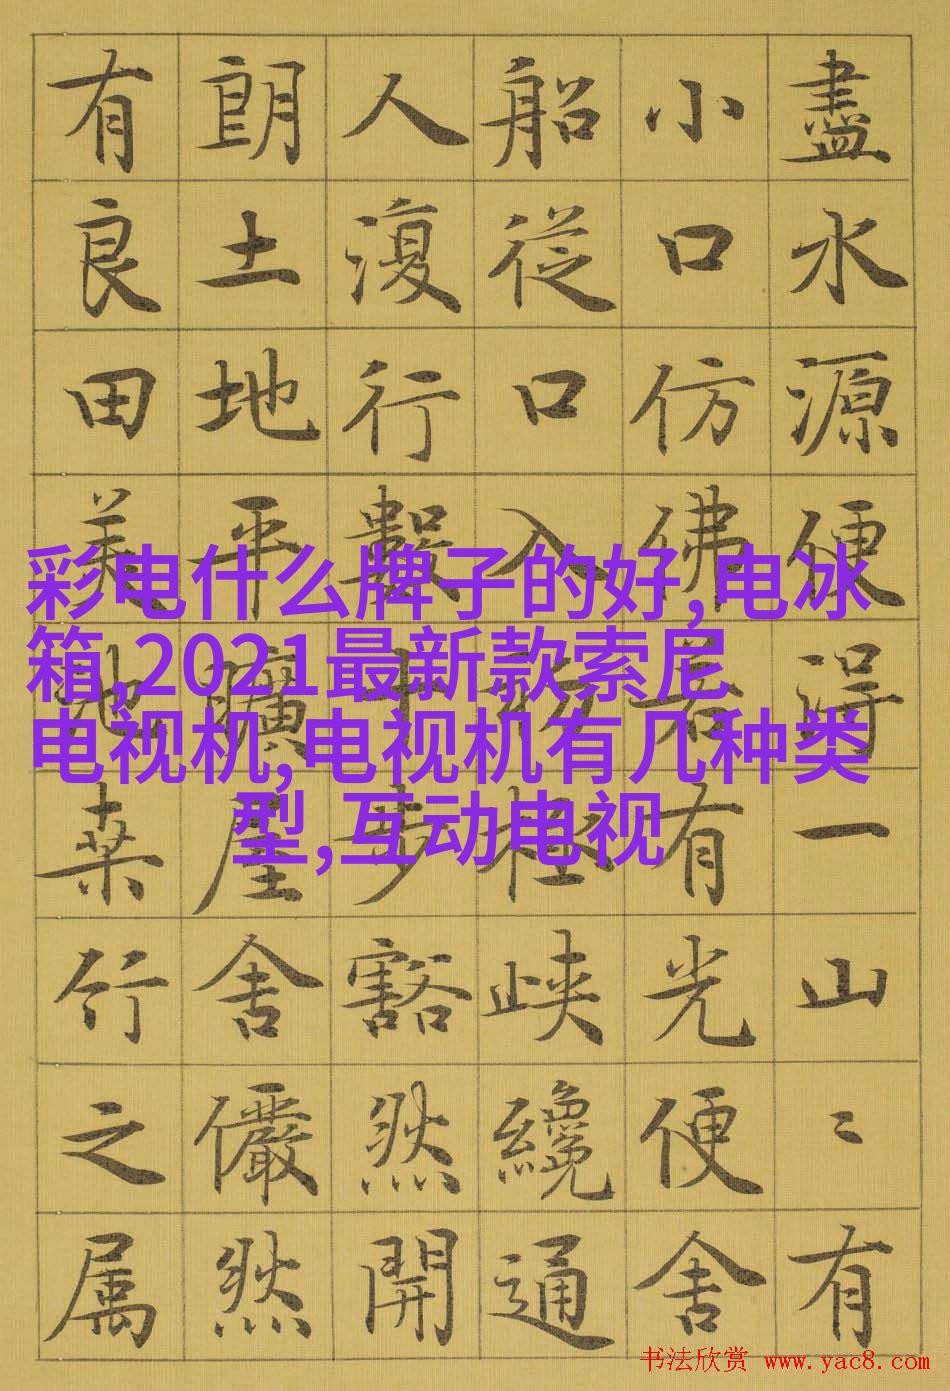 盡水源便得一山〻有
小口仿佛若有光便舍
船從口入初極峽纔通
人復行數十步豁然開
朗土地平曠屋舍儼然
有良田美池桑竹之属
彩电什么牌子的好,电冰
箱,2021最新款索尼
电视机,电视机有几种类
型,互动电视
书法欣赏 www.yac8.com